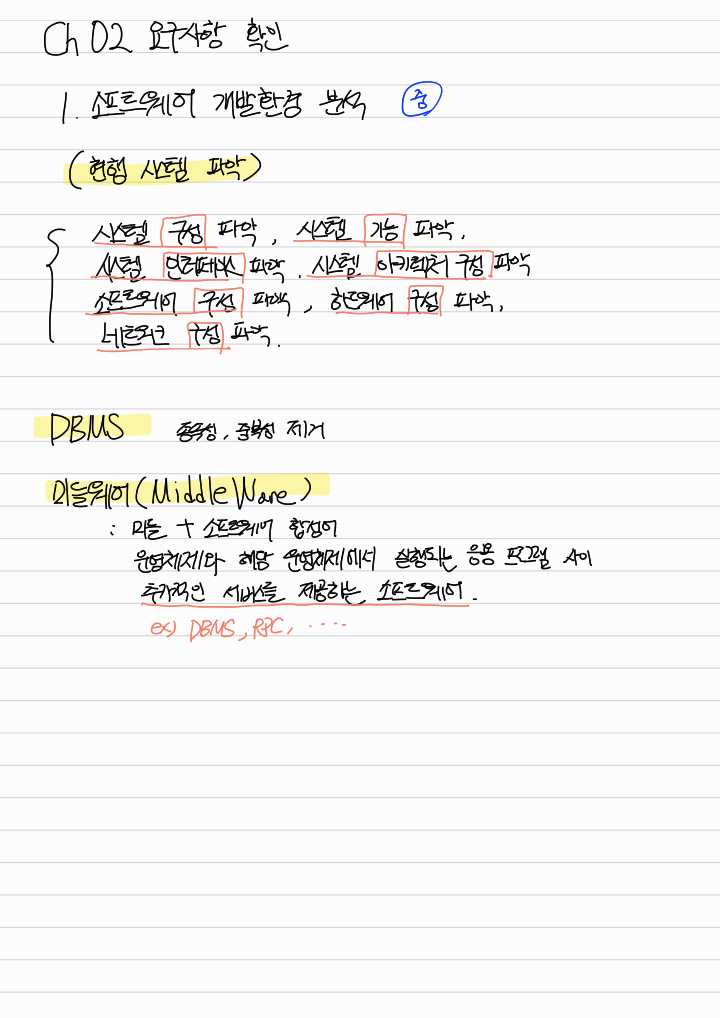 Ch 02 요구사항 확인
1. 소프트웨어 개발환경 분석 중
(현행 시스템 파악)
시스템 구성 파악, 시스템 기능 파악.
시스템 인터페이스 파악. 시스템 아키텍처 구성 파악
소프트웨어 구성 파악, 하드웨어 구성 파악,
네트워크 구성 파악.
DBMS 종속성, 중복성 제거
미들웨어(Middle Ware)
: 미들 + 소프트웨어 합성어
운영체제와 해당 운영체제에서 실행되는 응용 프로그램 사이
추가적인 서비스를 제공하는 소프트웨어.
ex) DBMS, RPC, ....